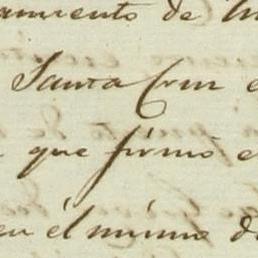 amiento de
Santa Cruz
que firmó e
en él mismo d